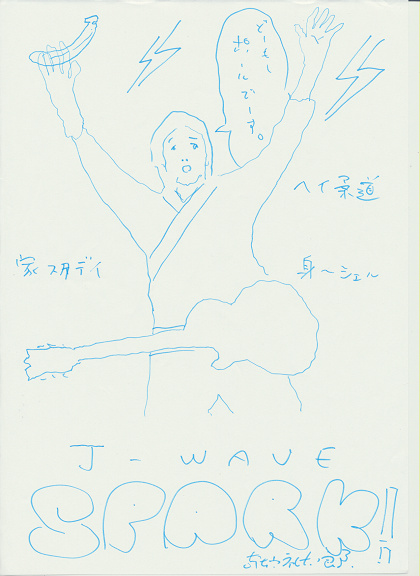 どーもし
ポールでーす。
ヘイ柔道
家スタデイ
身〜シェル
J-WAVE
SPARK!!